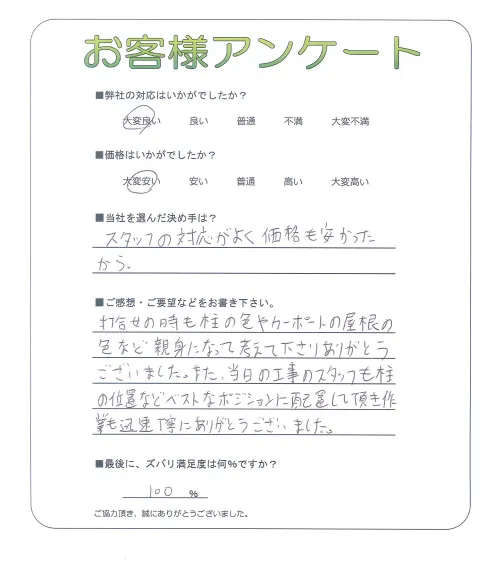 お客様アンケート
■弊社の対応はいかがでしたか？
大変良い 良い 普通 不満 大変不満
■価格はいかがでしたか？
大変安い 安い 普通 高い 大変高い
■当社を選んだ決め手は？
スタッフの対応がよく価格も安かった
から。
■ご感想・ご要望などをお書き下さい。
打合せの時も柱の色やカーポートの屋根の
色など親身になって考えて下さりありがとう
ございました。また、当日の工事のスタッフも柱
の位置などベストなポジションに配置して頂き作
業も迅速丁寧にありがとうございました。
■最後に、ズバリ満足度は何％ですか？
100 ％
ご協力頂き、誠にありがとうございました。